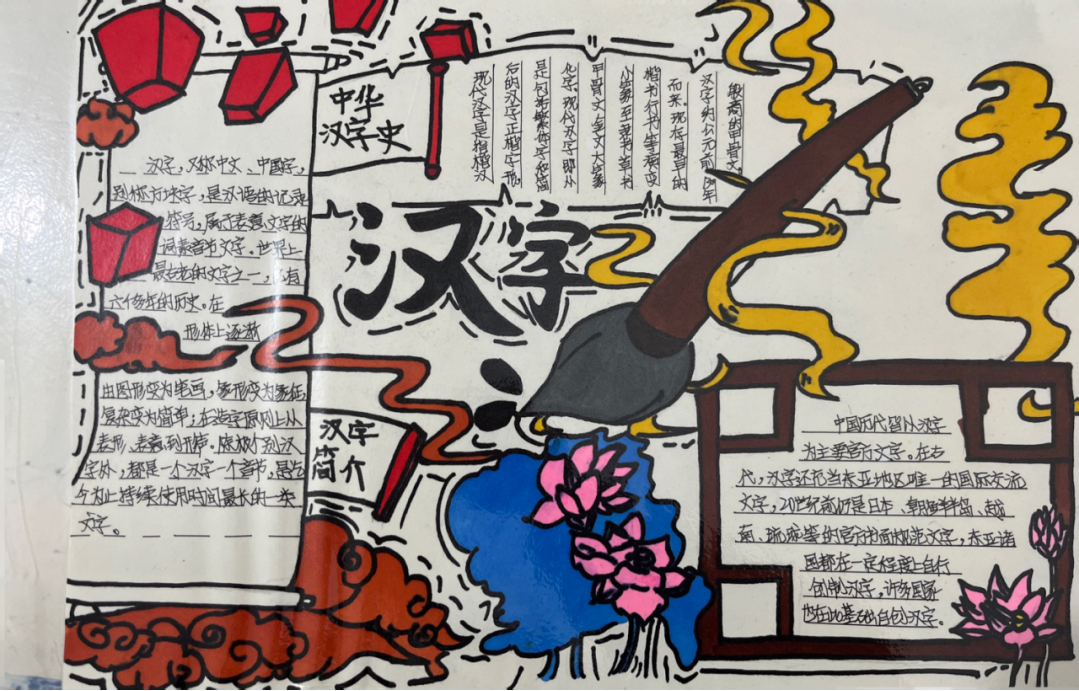 中华
汉字史
汉字，又称中文、中国字，
别称方块字，是汉语的记录
符号，属于表意文字的
词素音节文字。世界上
最古老的文字之一，已有
六千多年的历史。在
形体上逐渐
由图形变为笔画，象形变为象征，
复杂变为简单；在造字原则上从
表形、表意到形声。除极个别汉
字外，都是一个汉字一个音节，是迄
今为止持续使用时间最长的一类
文字。
殷商的甲骨文。
汉字约公元前
而来。现存最早的
楷书行书等演变
小篆至隶书草书
甲骨文金文大篆
化字。现代汉字即从
是包括繁体字和简
后的汉字正楷字形，
现代汉字是指楷汉
汉字
汉字
简介
中国历代皆以汉字
为主要官方文字。在古
代，汉字还充当东亚地区唯一的国际交流
文字，20世纪前仍是日本、朝鲜半岛、越
南、琉球等的官方书面规范文字，东亚诸
国都在一定程度上自行
创制汉字，许多国家
也在此基础自创汉字。